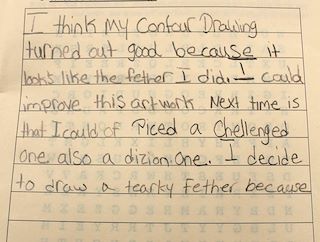 I think My Contour Drawing
turned out good because it
looks like the fether I did. I could
improve this artwork Next time is
that I could of Piced a Chellenged
one also a dizion one. I decide
to draw a tearky fether because